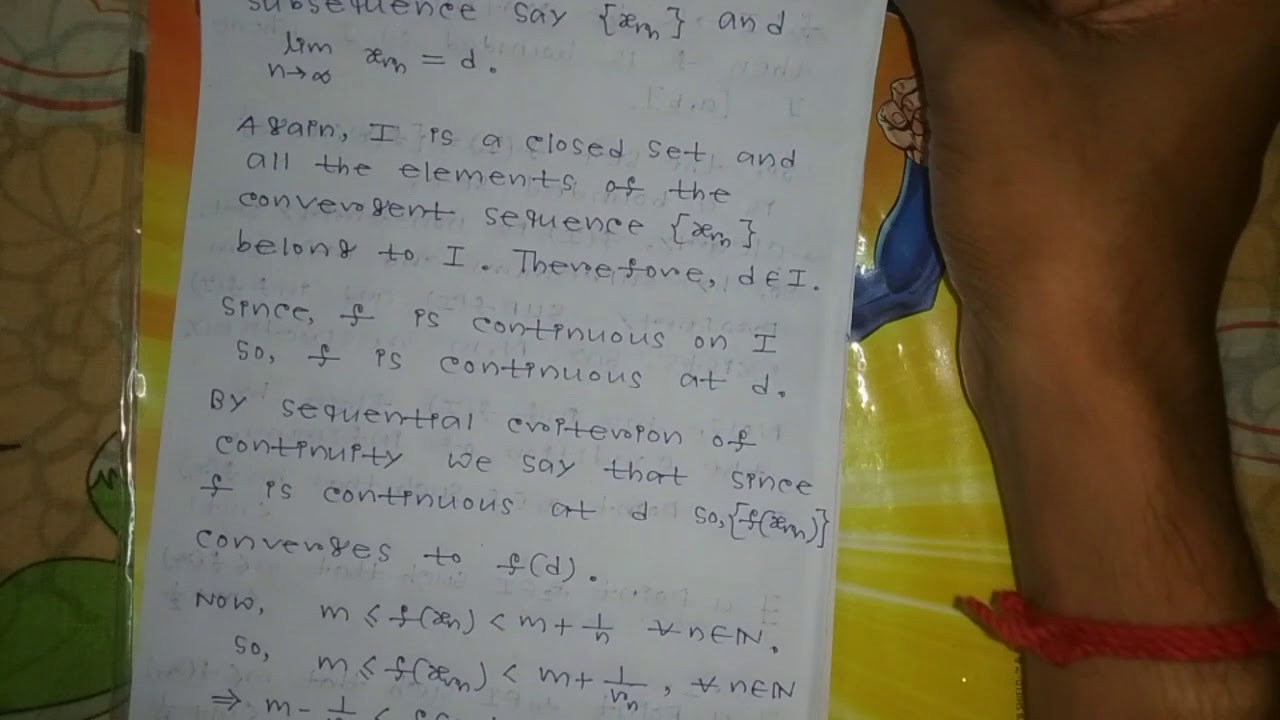 subsequence say {xrn} and
lim n→∞ xrn = d.
Again, I is a closed set, and
all the elements of the
convergent sequence {xrn}
belong to I. Therefore, d∈I.
Since, f is continuous on I
so, f is continuous at d.
By sequential criterion of
continuity we say that since
f is continuous at d so, {f(xrn)}
converges to f(d).
Now, m ≤ f(xn) < m + 1/n ∀ n∈ℕ.
So, m ≤ f(xrn) < m + 1/rn, ∀ n∈ℕ
⇒ m - 1/rn <